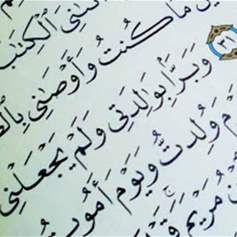 ٱلْكِتَٰبَ
مَا كُنتُ وَأَوْصَٰنِي
وَبَرًّا بِوَٰلِدَتِي وَلَمْ يَجْعَلْنِي
وُلِدتُّ وَيَوْمَ أَمُوتُ
مَرْيَمَ